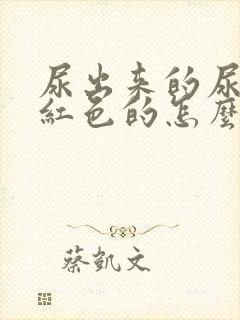 尿出来的尿
紅色的怎麼
蔡凱文